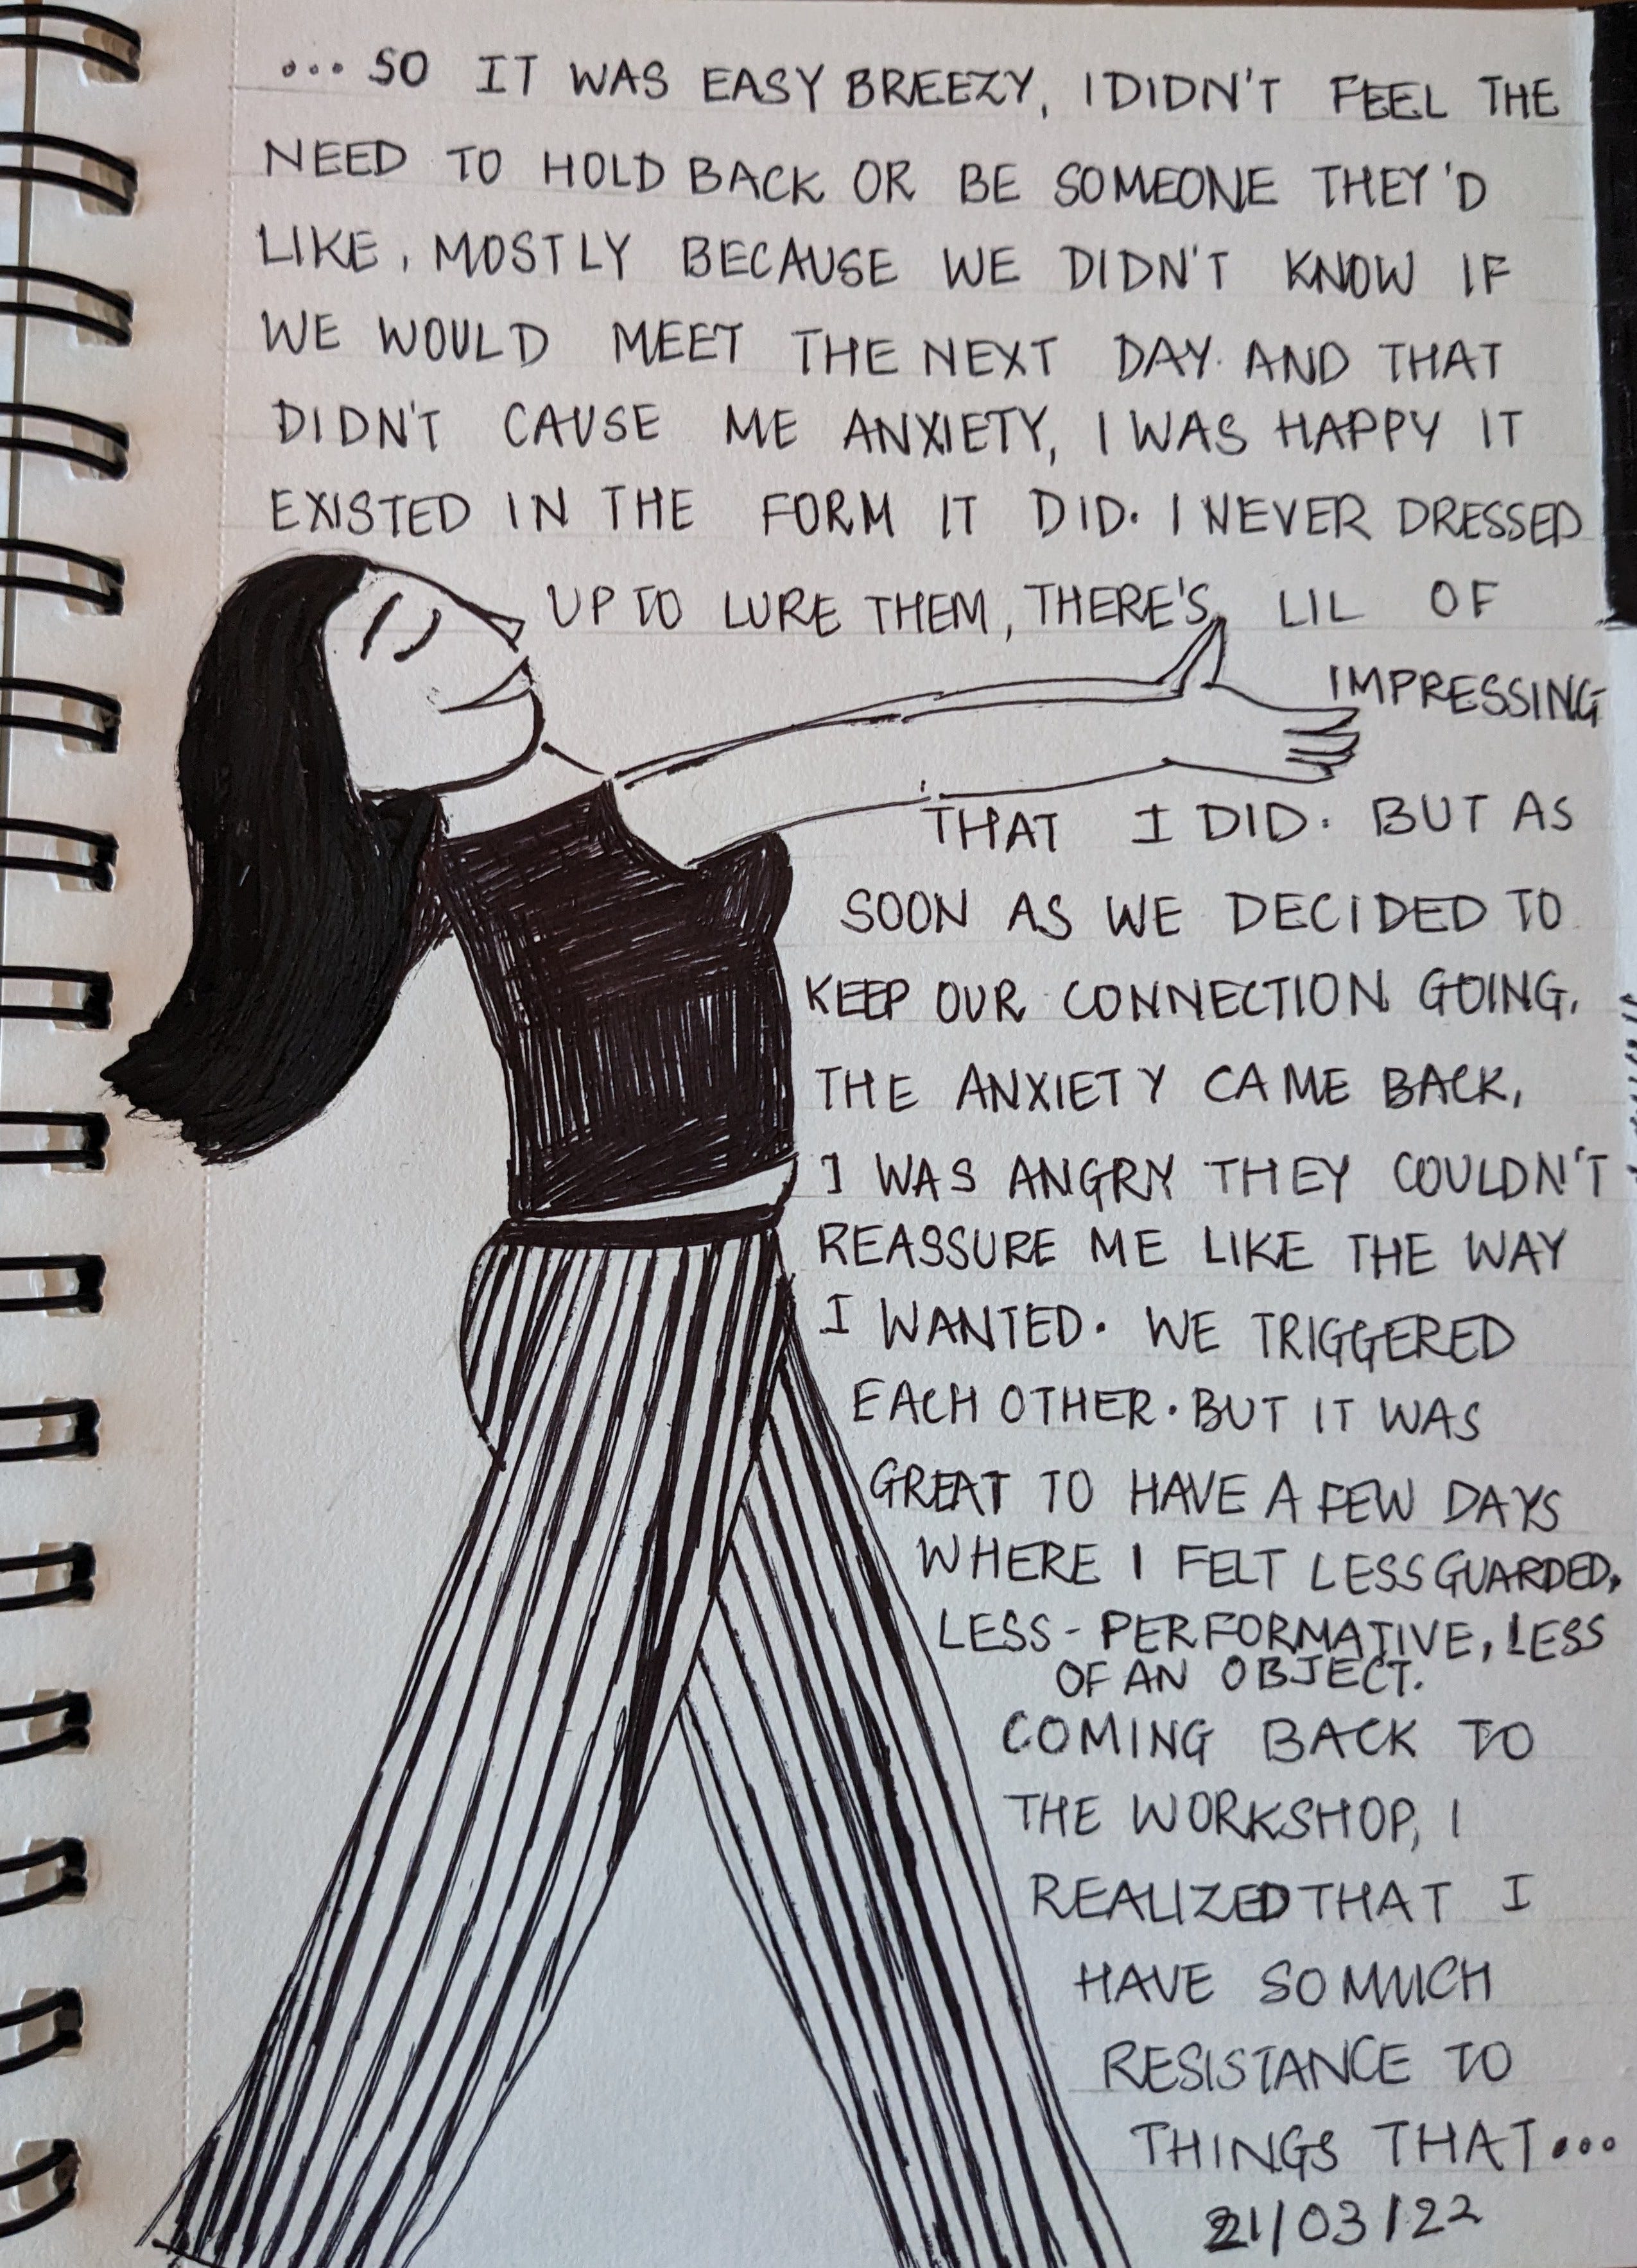 ... SO IT WAS EASY BREEZY, I DIDN'T FEEL THE
NEED TO HOLD BACK OR BE SOMEONE THEY'D
LIKE, MOSTLY BECAUSE WE DIDN'T KNOW IF
WE WOULD MEET THE NEXT DAY. AND THAT
DIDN'T CAUSE ME ANXIETY, I WAS HAPPY IT
EXISTED IN THE FORM IT DID. I NEVER DRESSED
UP TO LURE THEM, THERE'S LIL OF
IMPRESSING
THAT I DID. BUT AS
SOON AS WE DECIDED TO
KEEP OUR CONNECTION GOING,
THE ANXIETY CAME BACK,
I WAS ANGRY THEY COULDN'T
REASSURE ME LIKE THE WAY
I WANTED. WE TRIGGERED
EACH OTHER. BUT IT WAS
GREAT TO HAVE A FEW DAYS
WHERE I FELT LESS GUARDED,
LESS-PERFORMATIVE, LESS
OF AN OBJECT.
COMING BACK TO
THE WORKSHOP, I
REALIZED THAT I
HAVE SO MUCH
RESISTANCE TO
THINGS THAT...
21/03/22